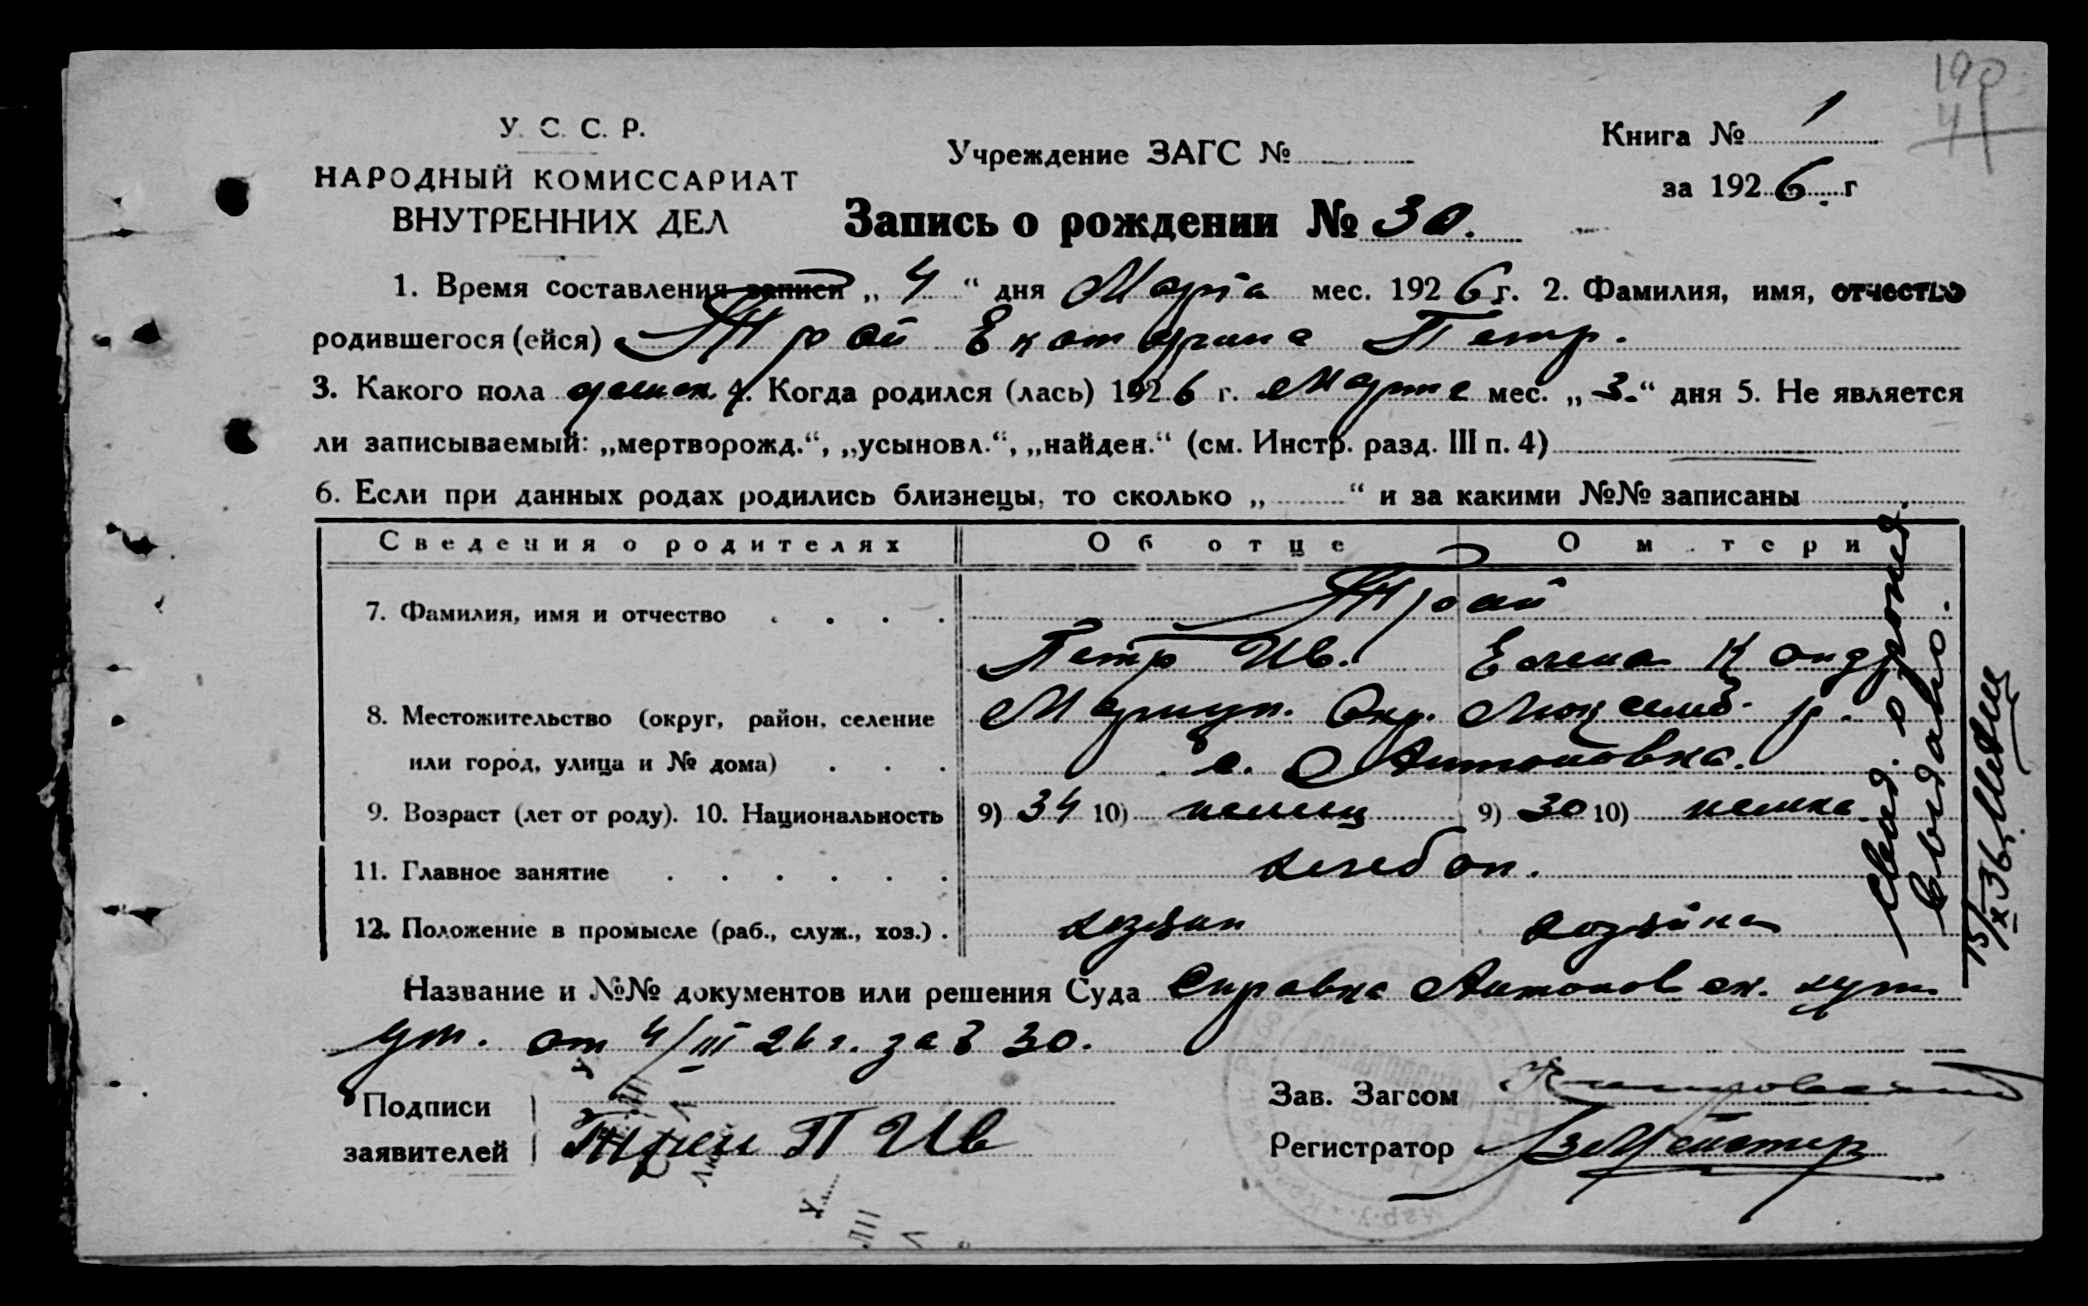 190
4
У. С. С. Р.
НАРОДНЫЙ КОМИССАРИАТ
ВНУТРЕННИХ ДЕЛ
Учреждение ЗАГС №
Книга № 1
за 1926 г
Запись о рождении № 30.
1. Время составления записи „ 4 “ дня Марта мес. 1926 г. 2. Фамилия, имя, отчество
родившегося (ейся) Трай Екатерина Петр.
3. Какого пола женск. 4. Когда родился (лась) 1926 г. Марта мес. „ 3. “ дня 5. Не является
ли записываемый: „мертворожд.“, „усыновл.“, „найден.“ (см. Инстр. разд. III п. 4)
6. Если при данных родах родились близнецы, то сколько „ “ и за какими №№ записаны
Сведения о родителях Об отце О м тери
7. Фамилия, имя и отчество Трай
Петр Ив. Елена Кондр
8. Местожительство (округ, район, селение Мариуп. Окр. Люксемб. р.
или город, улица и № дома) с. Антоновка.
9. Возраст (лет от роду). 10. Национальность 9) 34 10) немец 9) 30 10) немка
11. Главное занятие хлебоп.
12. Положение в промысле (раб., служ., хоз.) хозяин хозяйка
Свид. о рожд.
выдано.
15/IX 36
Название и №№ документов или решения Суда Справка Антоновск. хут
от 4/III 26 г. за № 30.
Подписи
заявителей П Ив
Зав. Загсом
Регистратор